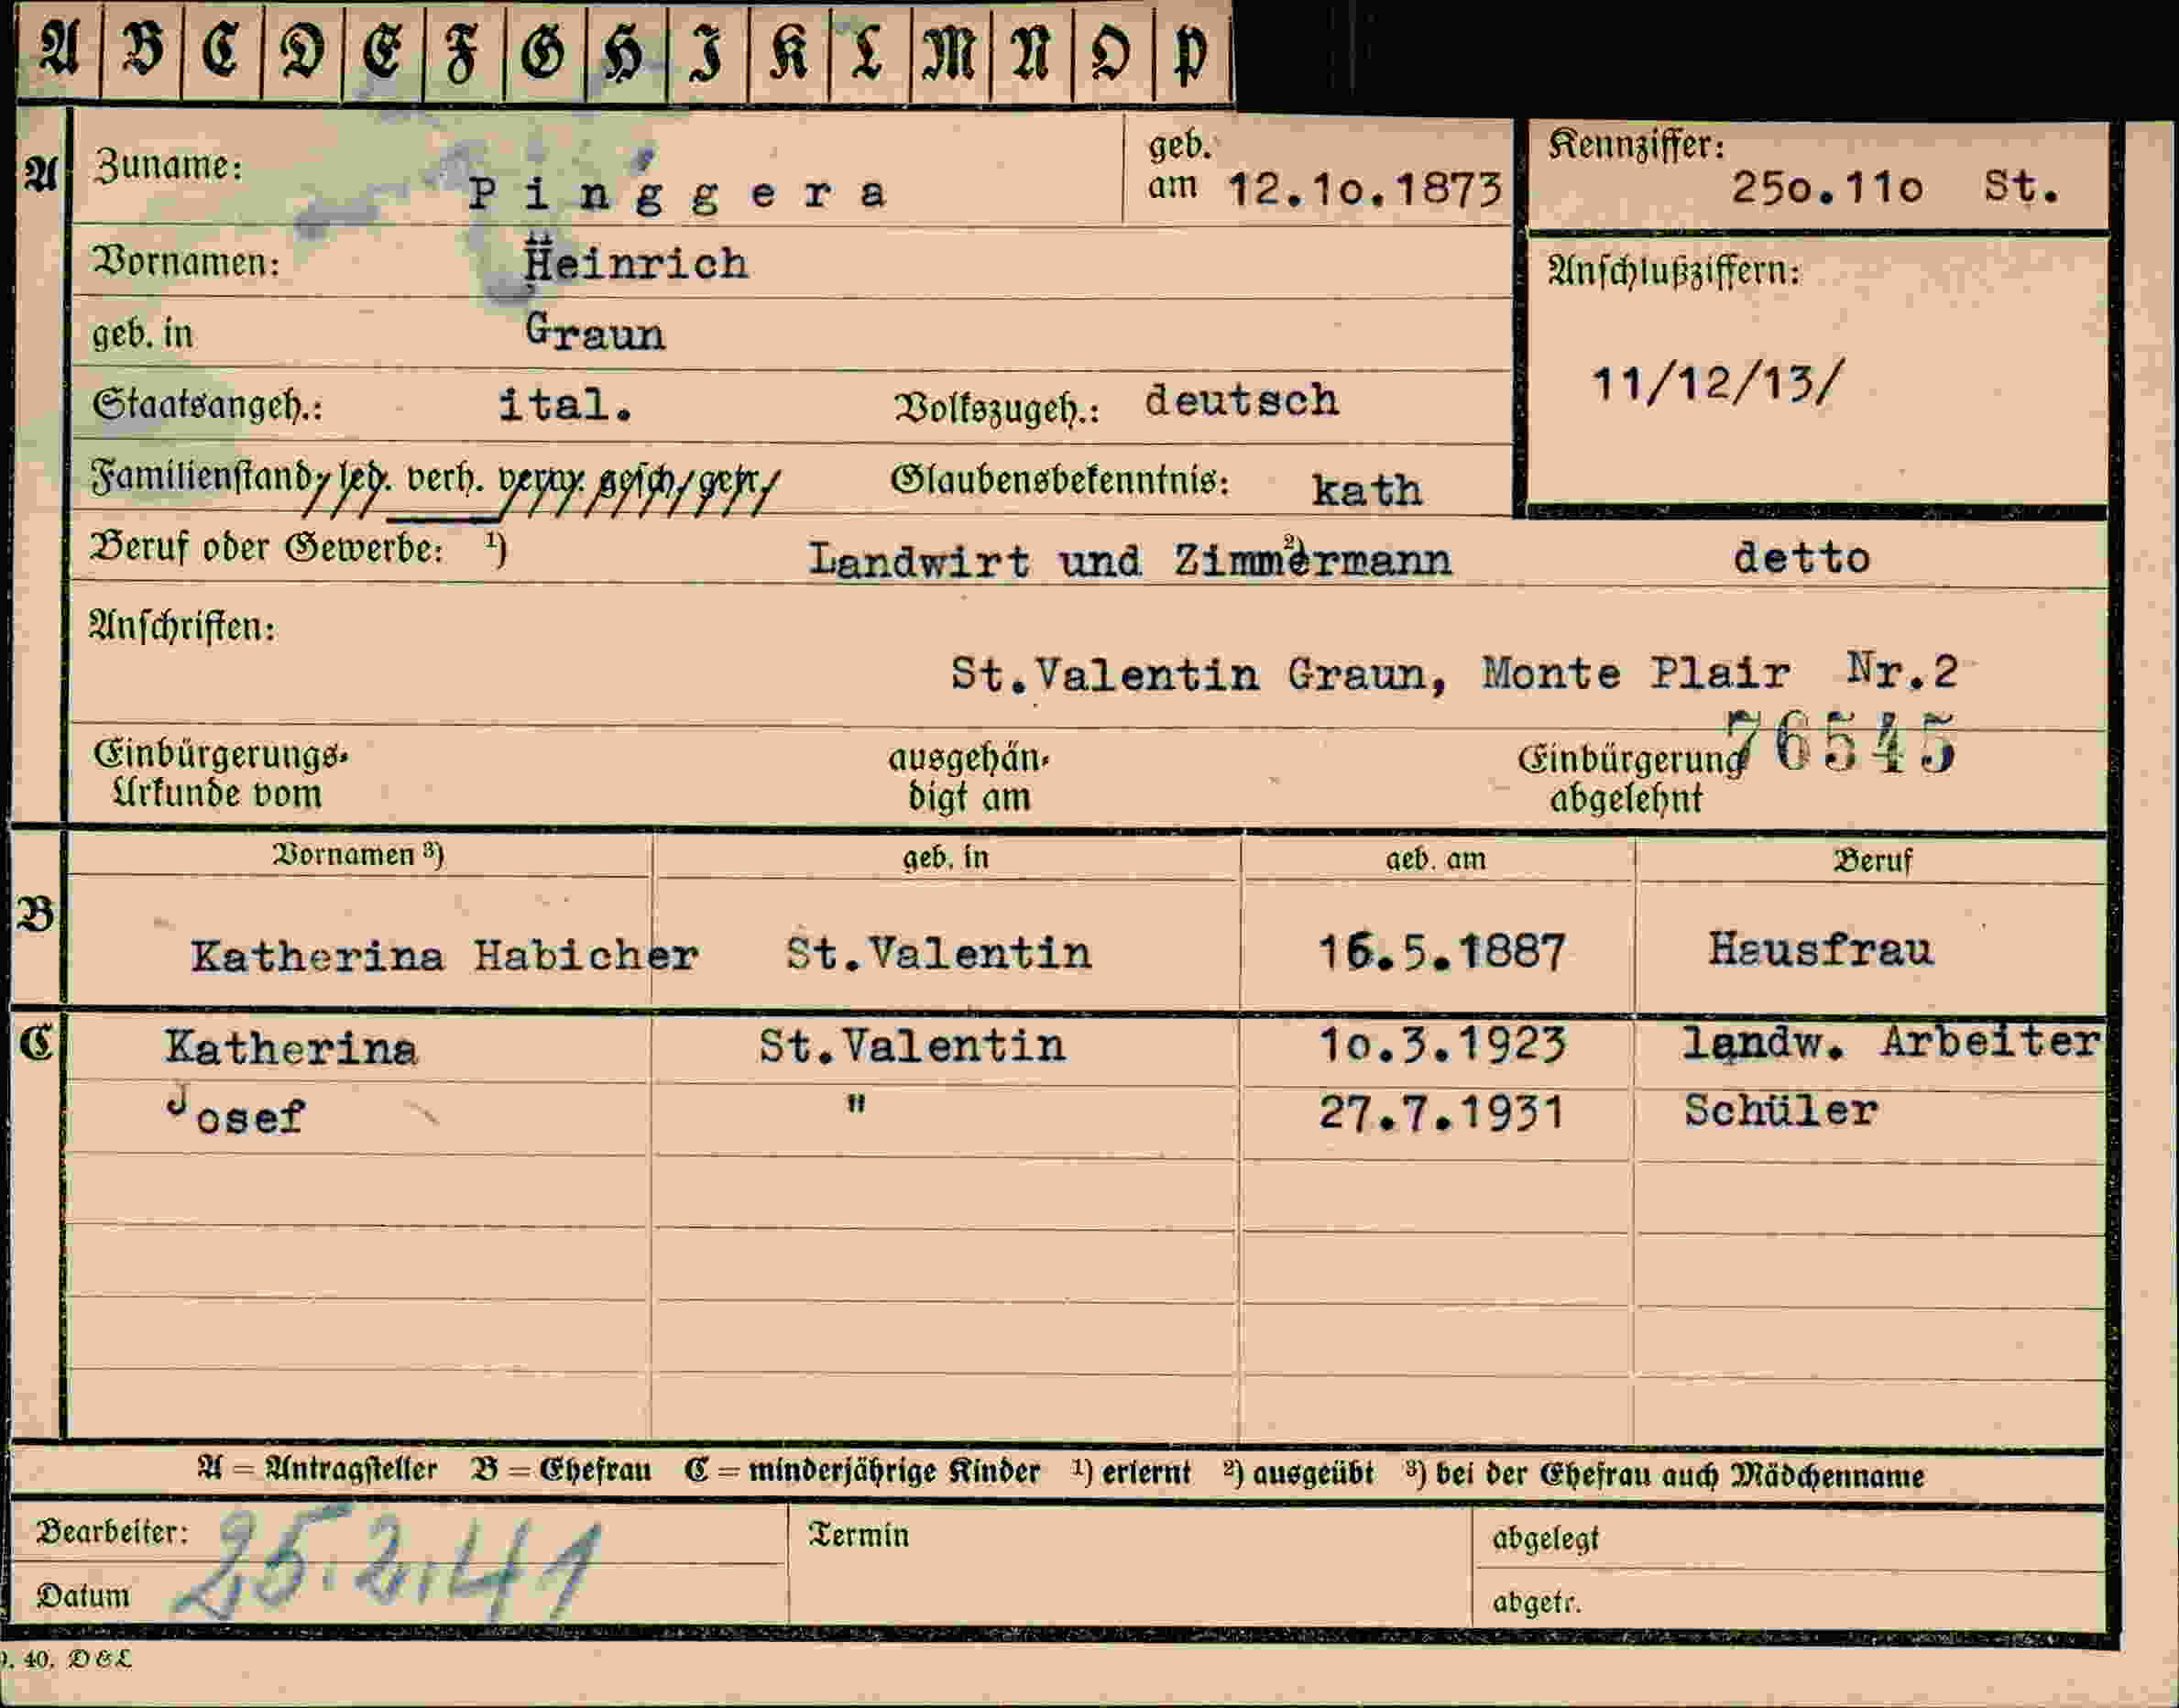 A B C D E F G H I K L M N O P
A Zuname: Pinggera geb. am 12.10.1873 Kennziffer: 25o.11o St.
Vornamen: Heinrich Anschlußziffern:
geb. in Graun
11/12/13/
Staatsangeh.: ital. Volkszugeh.: deutsch
Familienstand, led. verh. verw. gesch. getr. Glaubensbekenntnis: kath
Beruf oder Gewerbe: ¹) Landwirt und Zimmermann ²) detto
Anschriften:
St.Valentin Graun, Monte Plair Nr.2
76545
Einbürgerungs- ausgehän- Einbürgerung
Urkunde vom digt am abgelehnt
Vornamen ³) geb. in geb. am Beruf
B
Katherina Habicher St.Valentin 16.5.1887 Hausfrau
C Katherina St.Valentin 1o.3.1923 landw. Arbeiter
Josef " 27.7.1931 Schüler
A = Antragsteller B = Ehefrau C = minderjährige Kinder ¹) erlernt ²) ausgeübt ³) bei der Ehefrau auch Mädchenname
Bearbeiter: Termin abgelegt
25.2.41
Datum abgetr.
40. D&L